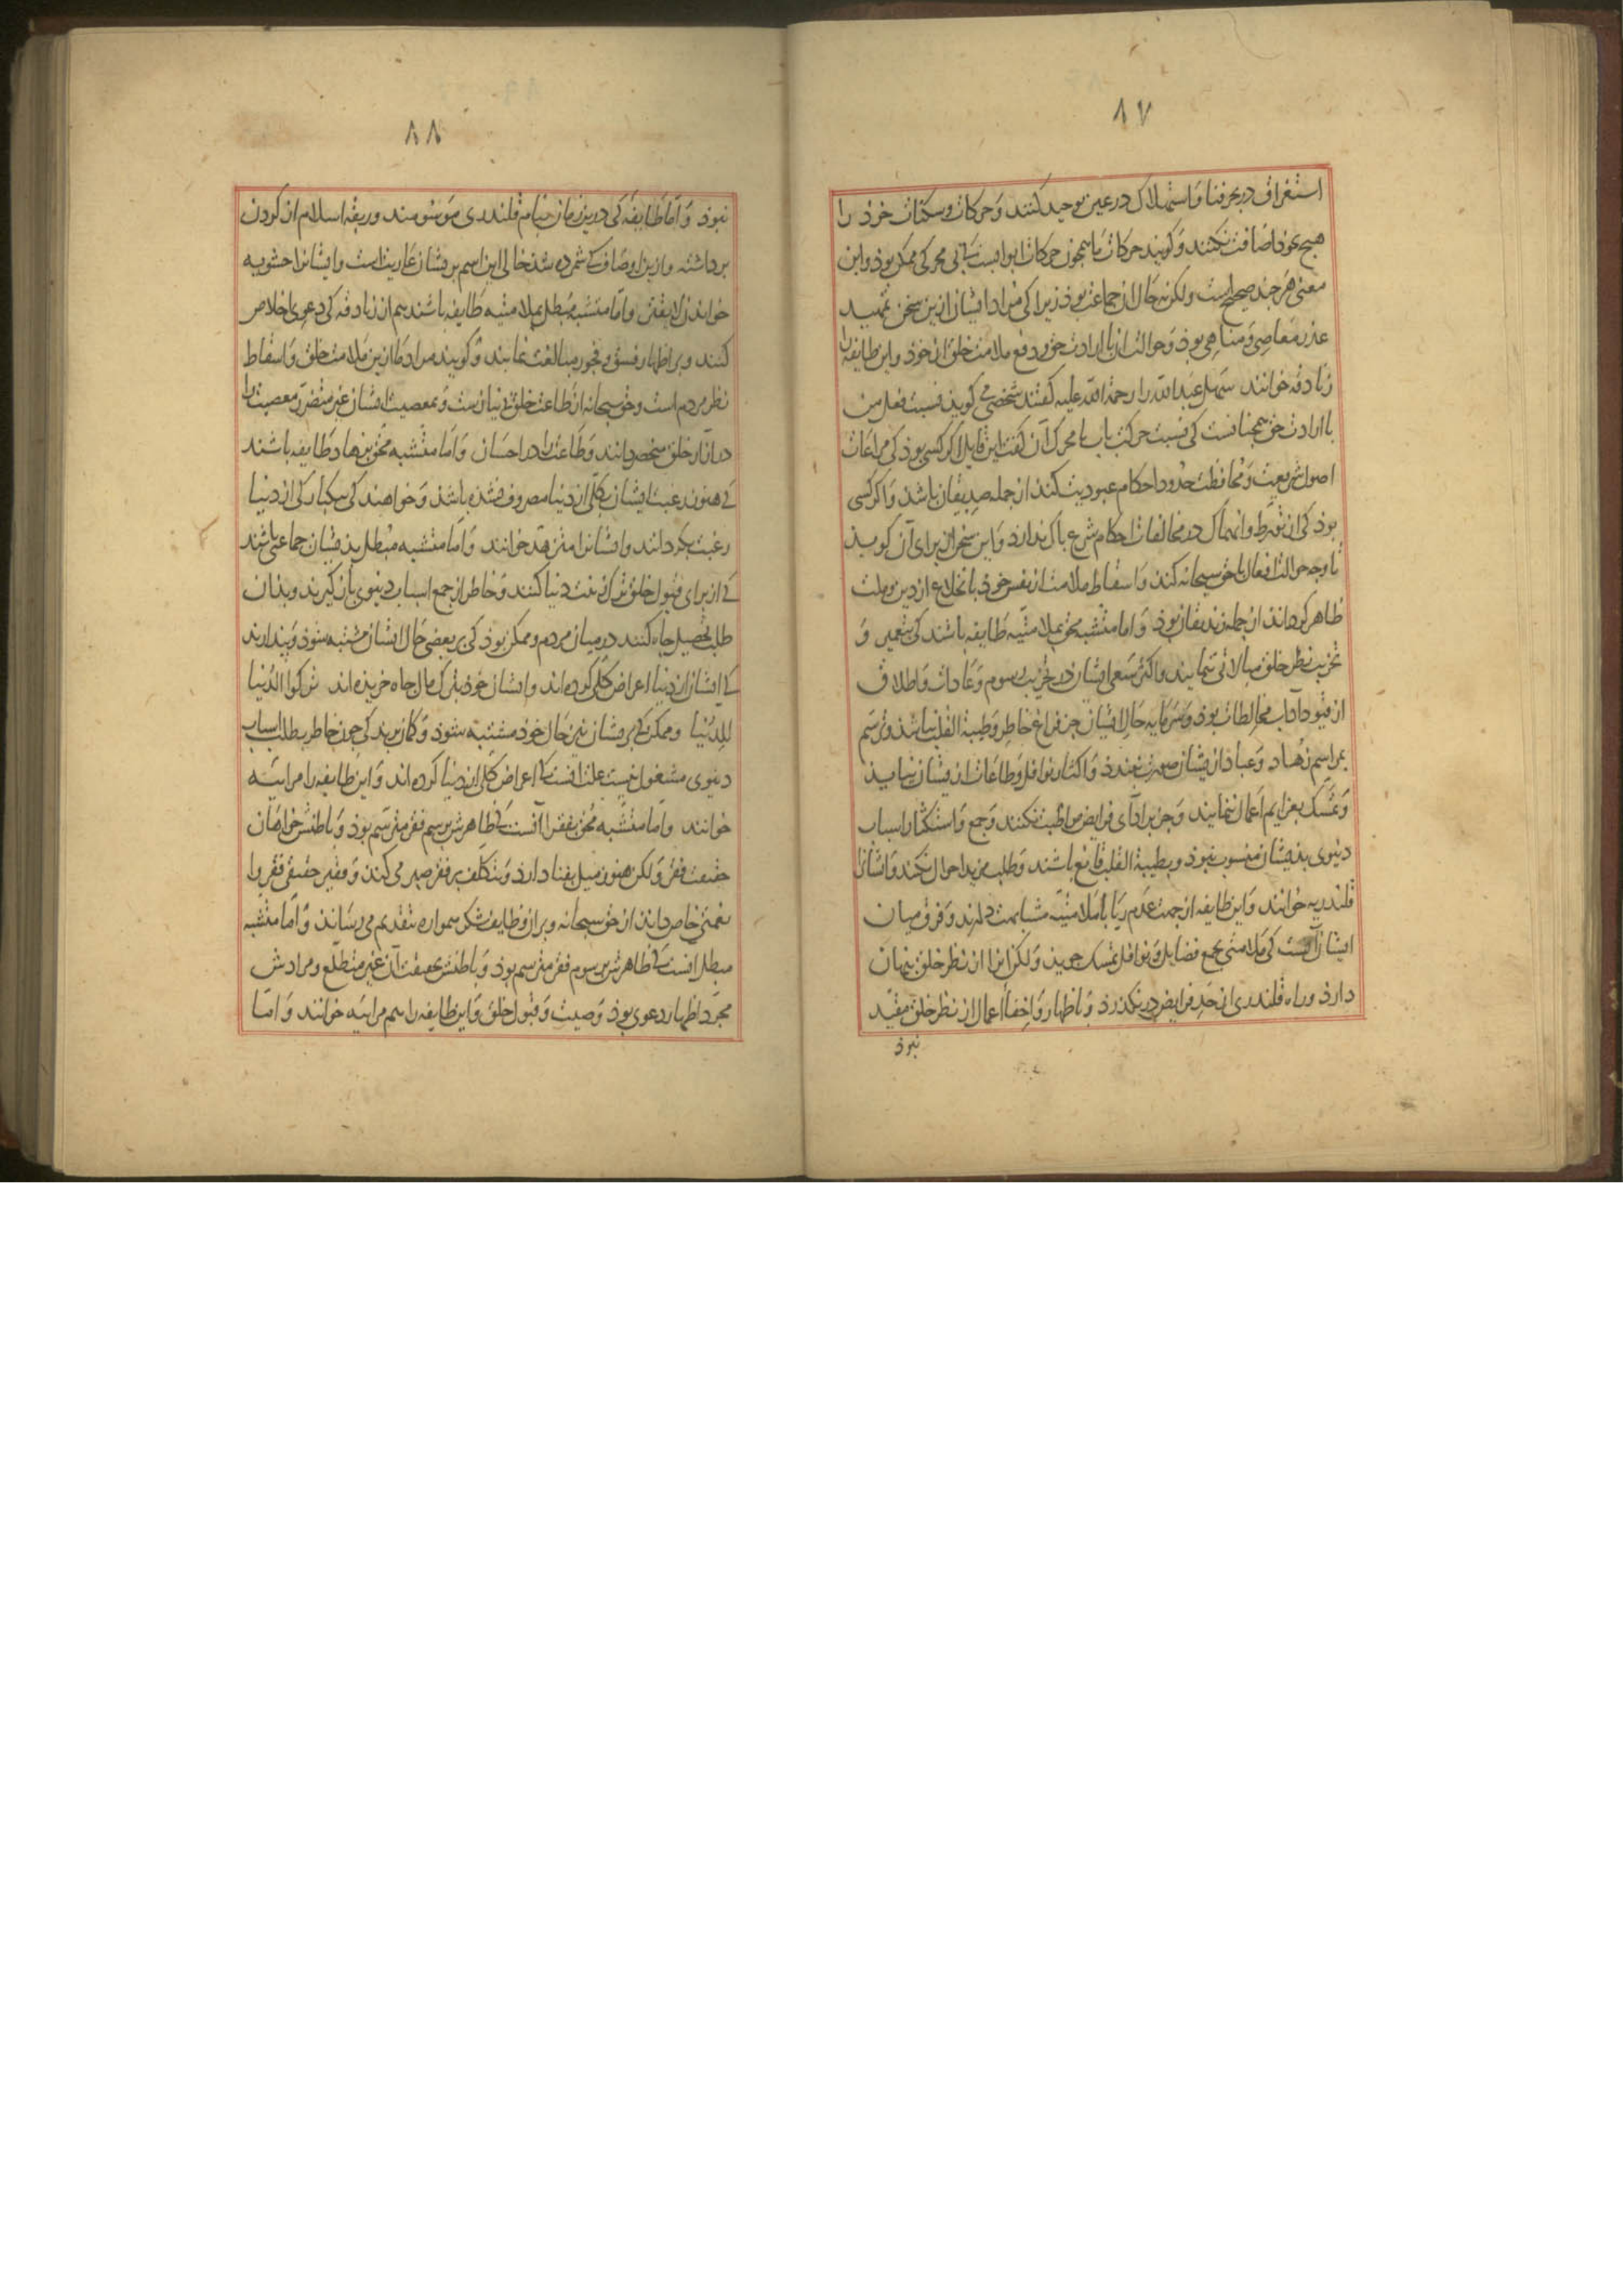 ۸۷
استغراق در بحر فنا و استهلاک در عین توحید کنند و حرکات و سکنات خود را
هیچ بخود اضافت نکنند و کویند حرکات ما همجون حرکات ابوابست کی بی محرک ممکن نبوذ و این
معنی هر جند صحیح است ولکن نه حال ان جماعت بوذ زیرا کی مراد ایشان ازین سخن تمهید
عذر معاصی و مناهی بوذ و حوالت ان باارادت حق و دفع ملامت خلق از خود و این طایفه را
زنادقه خوانند سهل عبدالله را رحمة الله علیه کفتند شخصی می کوید نسبت فعل من
باارادت حق همجنانست کی نسبت حرکت باب با محرک آن کفت این قایل اکر کسی بوذ کی مراعات
اصول شریعت و محافظت حدود احکام عبودیت کند از جمله صدیقان باشذ و اکر کسی
بوذ کی از تورط و انهماک در مخالفات احکام شرع باک ندارد و این سخن از برای آن کوید
تا وجه حوالت افعال باحق سبحانه کند و اسقاط ملامت از نفس خوذ با نخلاع از دین و ملت
ظاهر کرداند از جمله زندیقان بوذ و اما متشبه محق بملامتیه طایفه باشند کی بتعمیر و
تخریب نظر خلق مبالاتی ننمایند و اکثر سعی ایشان در تخریب رسوم و عادات و اطلاق
از قیود آداب مخالطات بوذ و سرمایه حال ایشان جز فراغ خاطر و طیبة القلب نباشذ و ترسم
بمراسم زهاد و عباد از یشان صورت نبندذ و اکثار نوافل و طاعات از یشان نیاید
و تمسک بعزایم اعمال ننمایند و جز بر ادای فرایض مواظبت نکنند و جمع و استکثار اسباب
دنیوی بذیشان منسوب نبوذ و بطیبة القلب قانع باشند و طلب مزید احوال نکنند و ایشانرا
قلندریه خوانند و این طایفه از جهت عدم ریا با ملامتیه مشابهت دارند و فرق میان
ایشان آنست کی ملامتی بجمع فضایل و نوافل تمسک جوید ولکن انرا از نظر خلق پنهان
دارد و راه قلندری از حد فرایض در نکذرد و باظهار و اخفاء اعمال از نظر خلق مقید
نبوذ
۸۸
نبوذ و اما طایفه کی درین زمان بنام قلندری موسومند و ربقه اسلام از کردن
برداشته و ازین اوصاف کی شمرده شذ خالی این اسم بریشان عاریت است و ایشانرا حشویه
خوانذن لایقتر و اما متشبه مبطل بملامتیه طایفه باشند هم از زنادقه کی دعوی اخلاص
کنند و بر اظهار فسق و فجور مبالغت نمایند و کویند مراد ما ازین ملامت خلق و اسقاط
نظر مردم است و حق سبحانه از طاعت خلق بی نیازست و بمعصیت ایشان غیر متضرر معصیت را
در آزار خلق منحصر دانند و طاعت را در احسان و اما متشبه محق بزهاد طایفه باشند
کی هنوز رغبت ایشان بکلی از دنیا مصروف نشذه باشذ و خواهند کی یکبارکی از دنیا
رغبت بکردانند و ایشانرا متزهد خوانند و اما متشبه مبطل بذیشان جماعتی باشند
کی از برای قبول خلق ترک زینت دنیا کنند و خاطر از جمع اسباب دنیوی باز کیرند و بذان
طلب تحصیل جاه کنند در میان مردم و ممکن بوذ کی بر بعضی حال ایشان مشتبه شوذ و پندارند
کی ایشان از دنیا اعراض کلی کرده اند و ایشان خوذ بترک مال جاه خریذه اند ترکوا الدنیا
للدنیا و ممکن کی بریشان نیز حال خوذ مشتبه شوذ و کمان برند کی جون خاطر بطلب اسباب
دنیوی مشغول نیست علت انست کی اعراض کلی از دنیا کرده اند و این طایفه را مرائیه
خوانند و اما متشبه محق بفقرا آنست کی ظاهرش برسم فقر مترسم بوذ و باطنش خواهان
حقیقت فقر ولکن هنوز میل بغنا دارذ و بتکلف بر فقر صبر می کند و فقیر حقیقی فقر را
نعمتی خاص داند از حق سبحانه و بر ان وظایف شکر همواره بتقدیم می رساند و اما متشبه
مبطل انست کی ظاهرش برسوم فقر مترسم بوذ و باطنش بحقیقت آن غیر متطلع و مرادش
مجرد اظهار دعوی بوذ و صیت و قبول خلق و این طایفه را هم مرائیه خوانند و اما